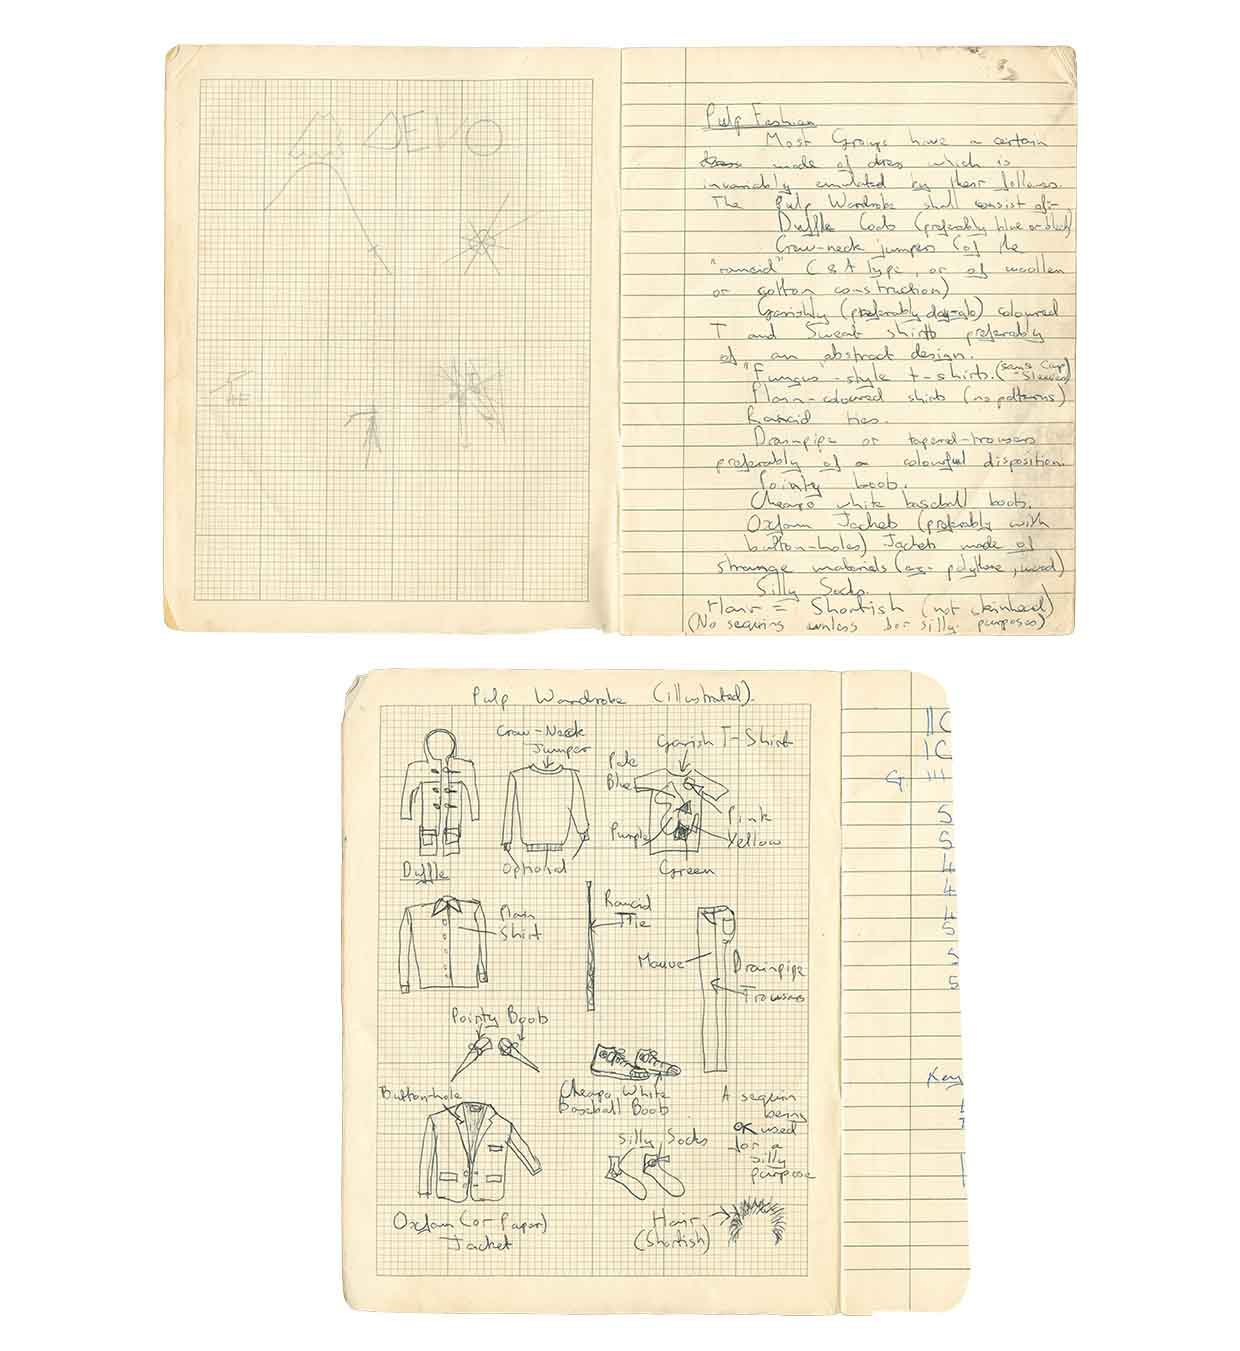 DEVO
THE
Pulp Fashion
Most Groups have a certain
mode of dress which is
invariably emulated by their followers.
The Pulp Wardrobe shall consist of:-
Duffle Coats (preferably blue or black)
Crew-neck jumpers (of the
"rancid" C & A type, or of woollen
or cotton construction)
Garishly (preferably day-glo) coloured
T and Sweat shirts preferably
of an abstract design.
"Fungus"-style t-shirts. (sans Cap
-Sleeves)
Plain-coloured shirts (no patterns)
Rancid ties.
Drainpipe or tapered-trousers
preferably of a colourful disposition.
Pointy boots.
Cheapo white baseball boots.
Oxfam Jackets (preferably with
button-holes) Jackets made of
strange materials (eg- polythene, wood)
Silly Socks.
Hair = Shortish (not skinhead)
(No sequins unless for silly purposes)
Pulp Wardrobe (illustrated).
Crew-Neck
Jumper
Garish T-Shirt
Pale
Blue
Pink
Purple
Yellow
Duffle
Optional
Green
Plain
Shirt
Rancid
Tie
Mauve
Drainpipe
Trousers
Pointy Boots
Button-hole
Cheapo White
Baseball Boots
A sequin
being
used
for a
silly
purpose
Silly Socks
Oxfam (or Paper)
Jacket
Hair
(Shortish)
11C
1C
G 111
5
5
4
4
4
5
5
5
Key